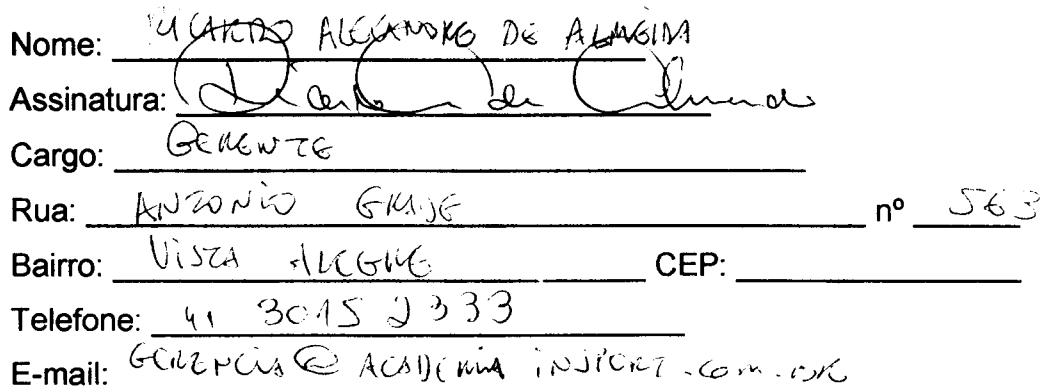 Nome: RICARDO ALEXANDRE DE ALMEIDA
Assinatura: Ricardo A de Almeida
Cargo: GERENTE
Rua: ANTONIO nº 563
Bairro: VISTA ALEGRE CEP:
Telefone: 41 3015 2333
E-mail: GERENCIA@ACADEMIAINSPORT.COM.BR